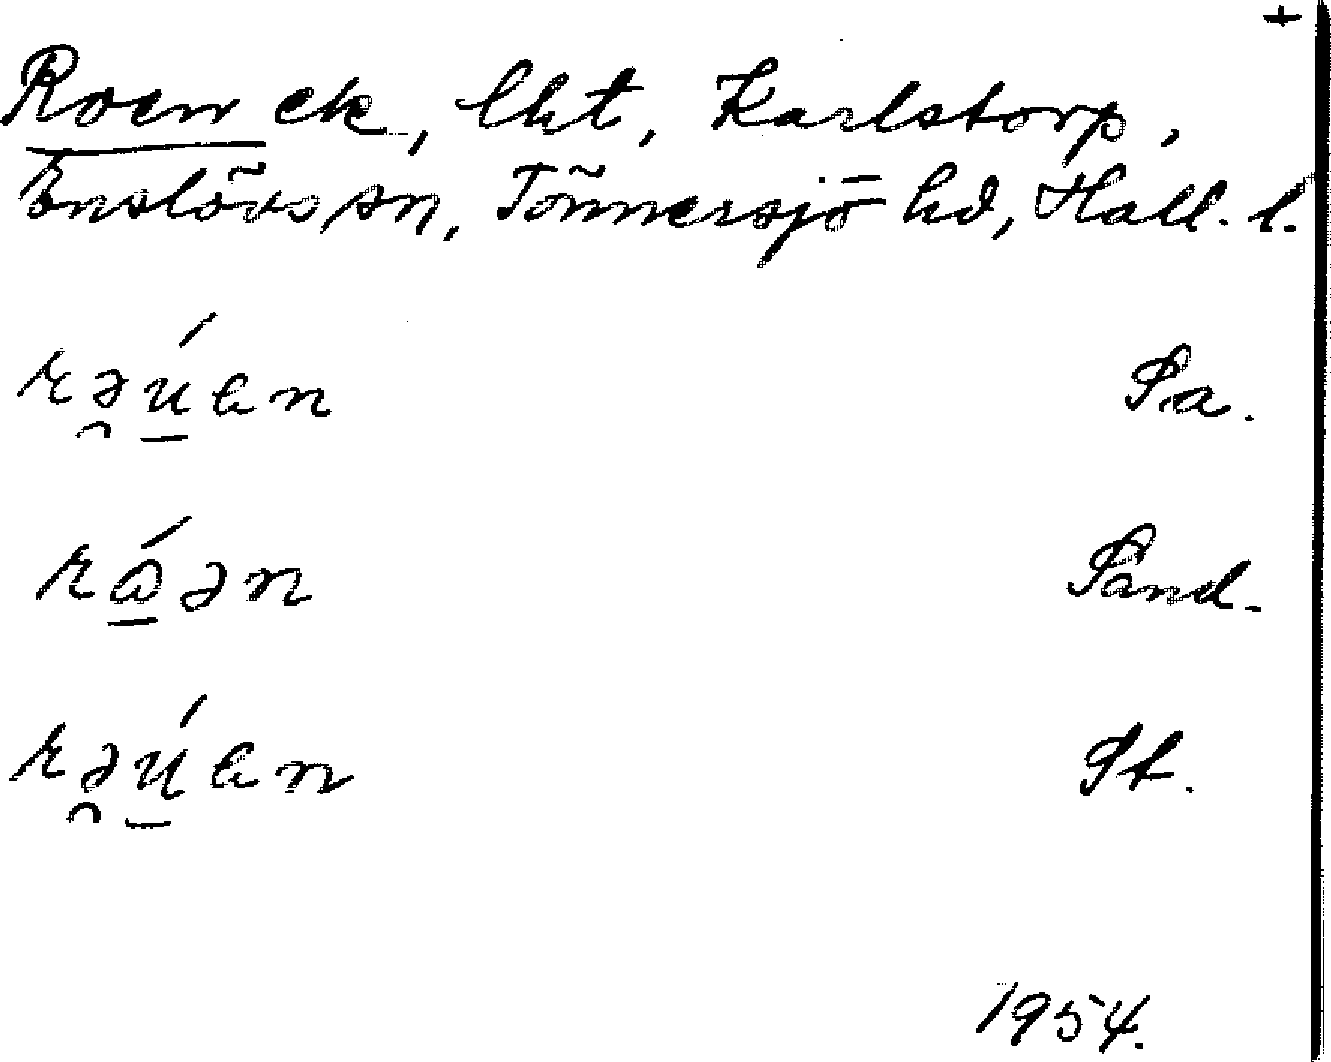 +
Roen ek, lht, Karlstorp,
Enslövs sn, Tönnersjö hd, Hall. l.
rə̯ú̱en Pa.
rɷ̱́ən Pand.
rə̯ú̱en Pt.
1954.